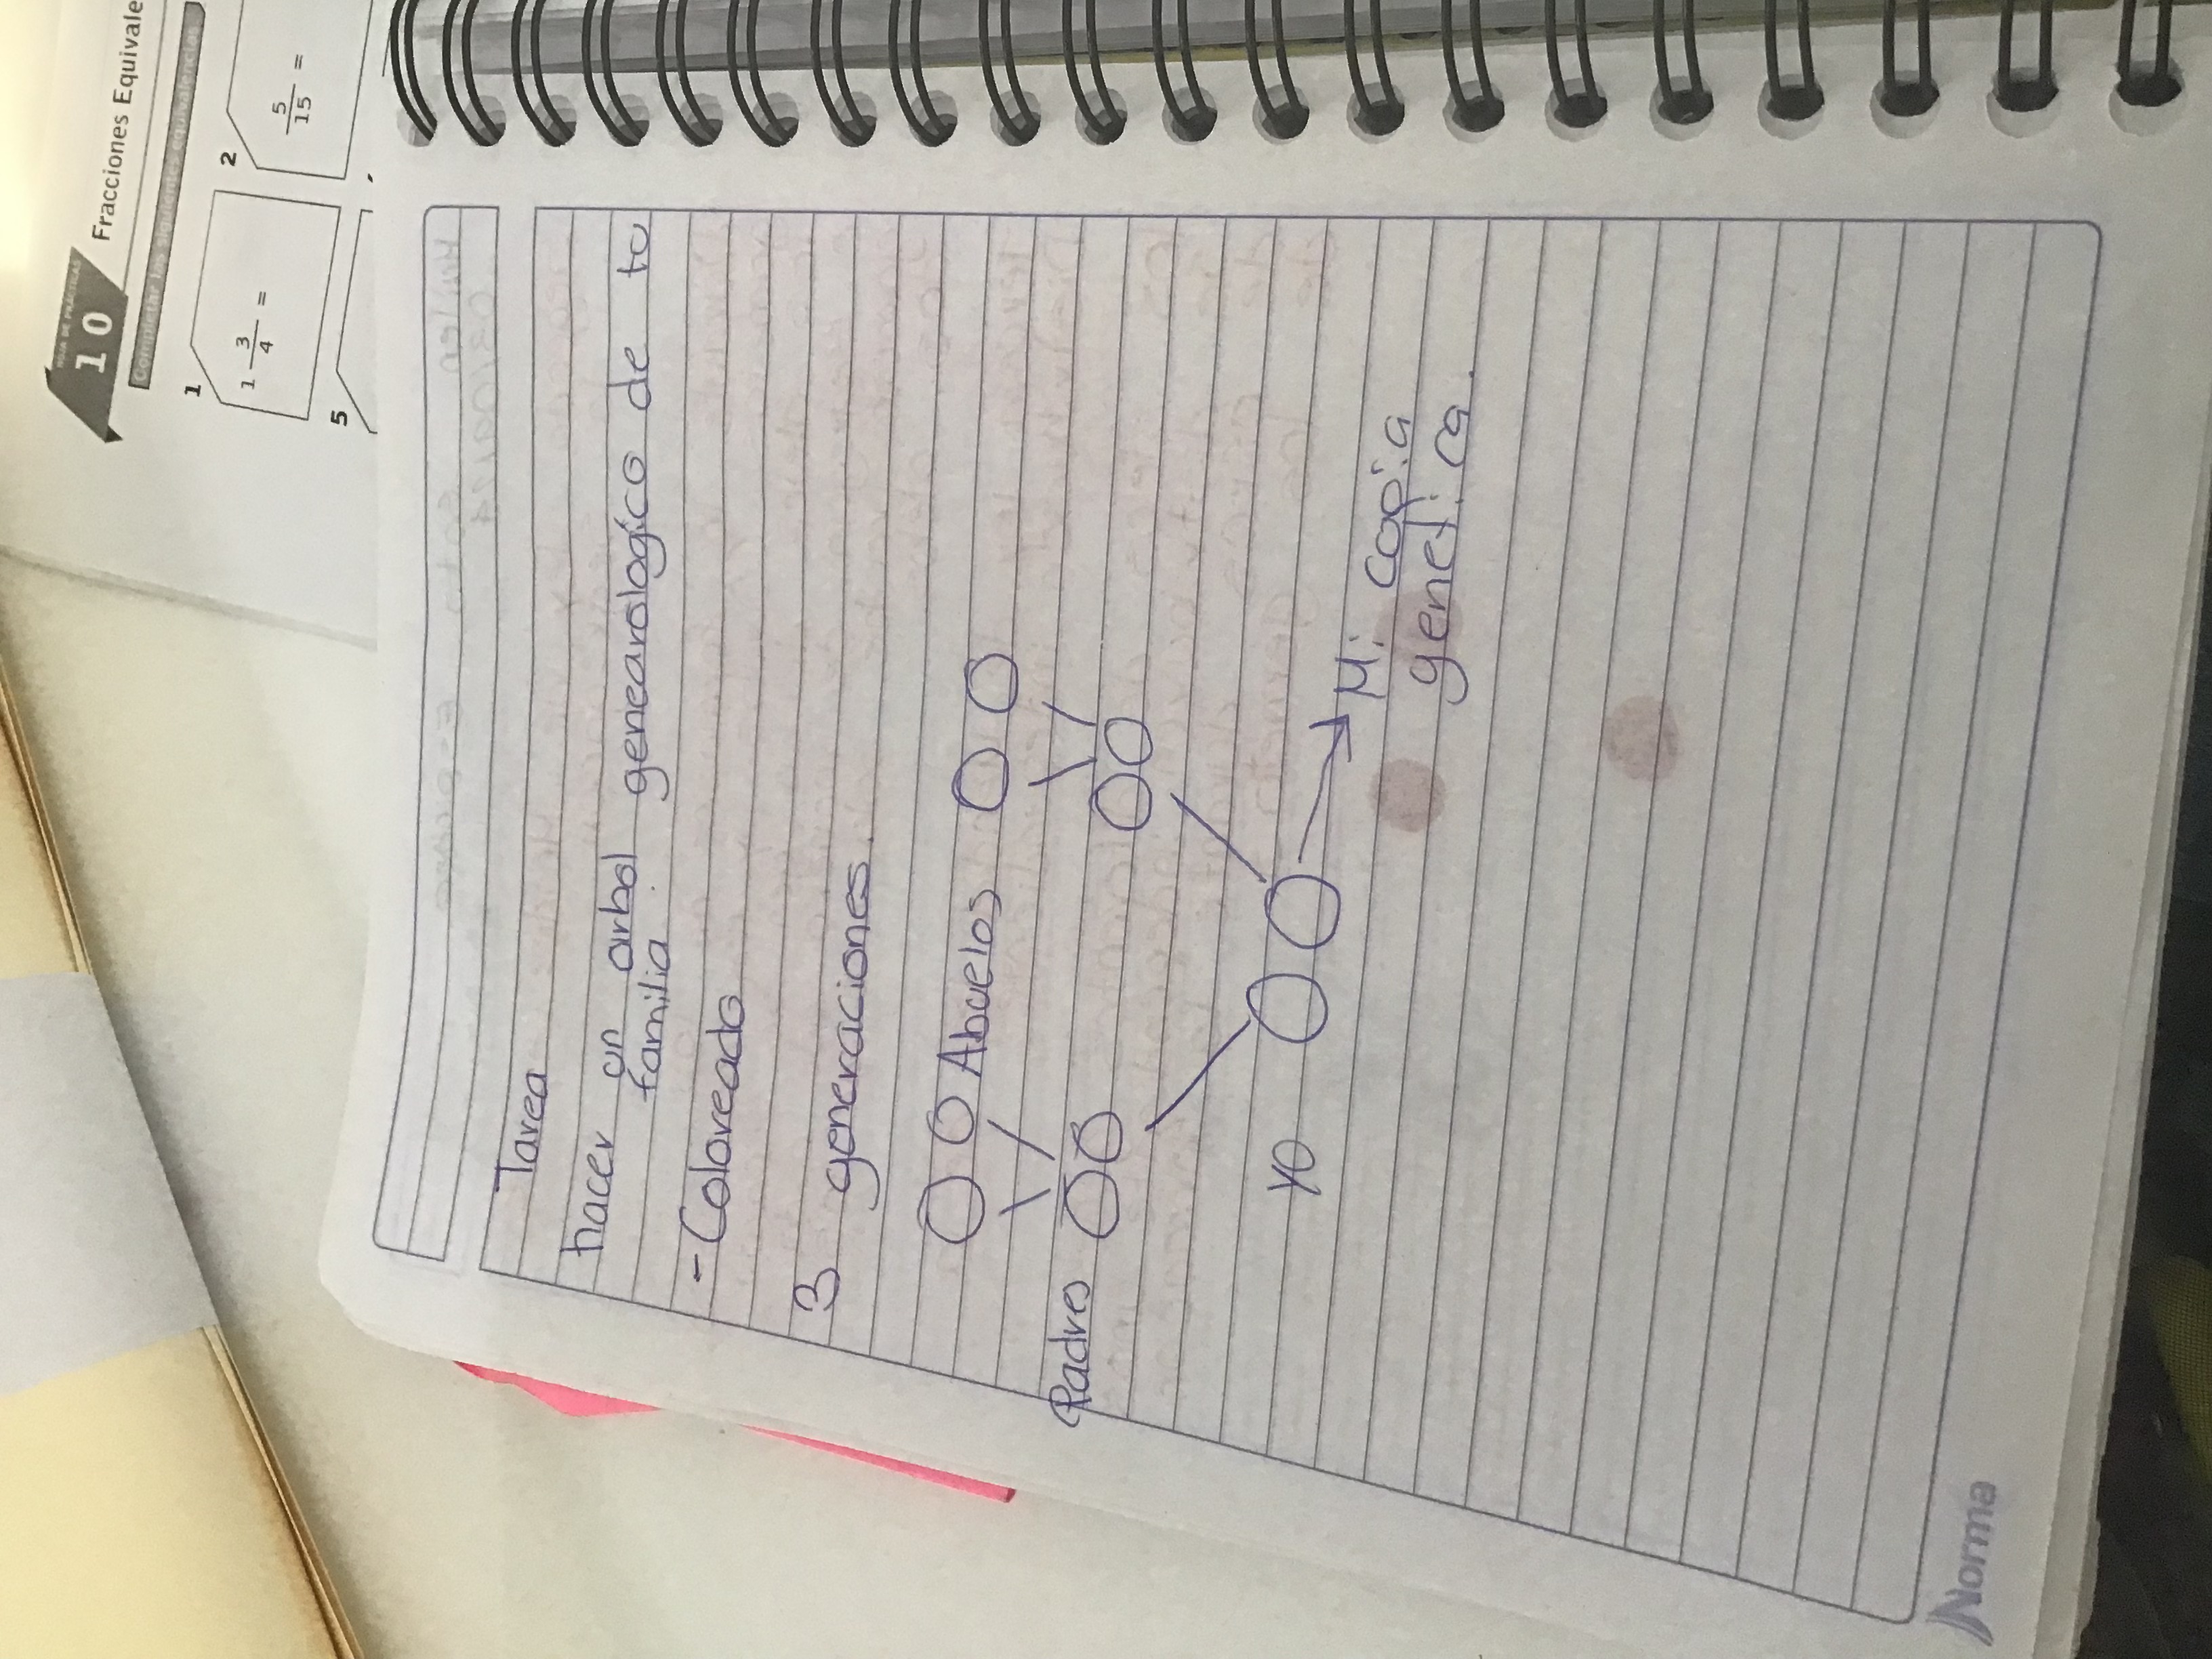 HOJA DE PRÁCTICAS
10
Fracciones Equivale
Completar las siguientes equivalencias
1
1 3/4 =
2
5/15 =
5
Tarea
hacer un arbol genearologíco de tu
familia.
- Coloreado
3 generaciones.
Abuelos
Padres
yo
Mi copia
genetica.
Norma